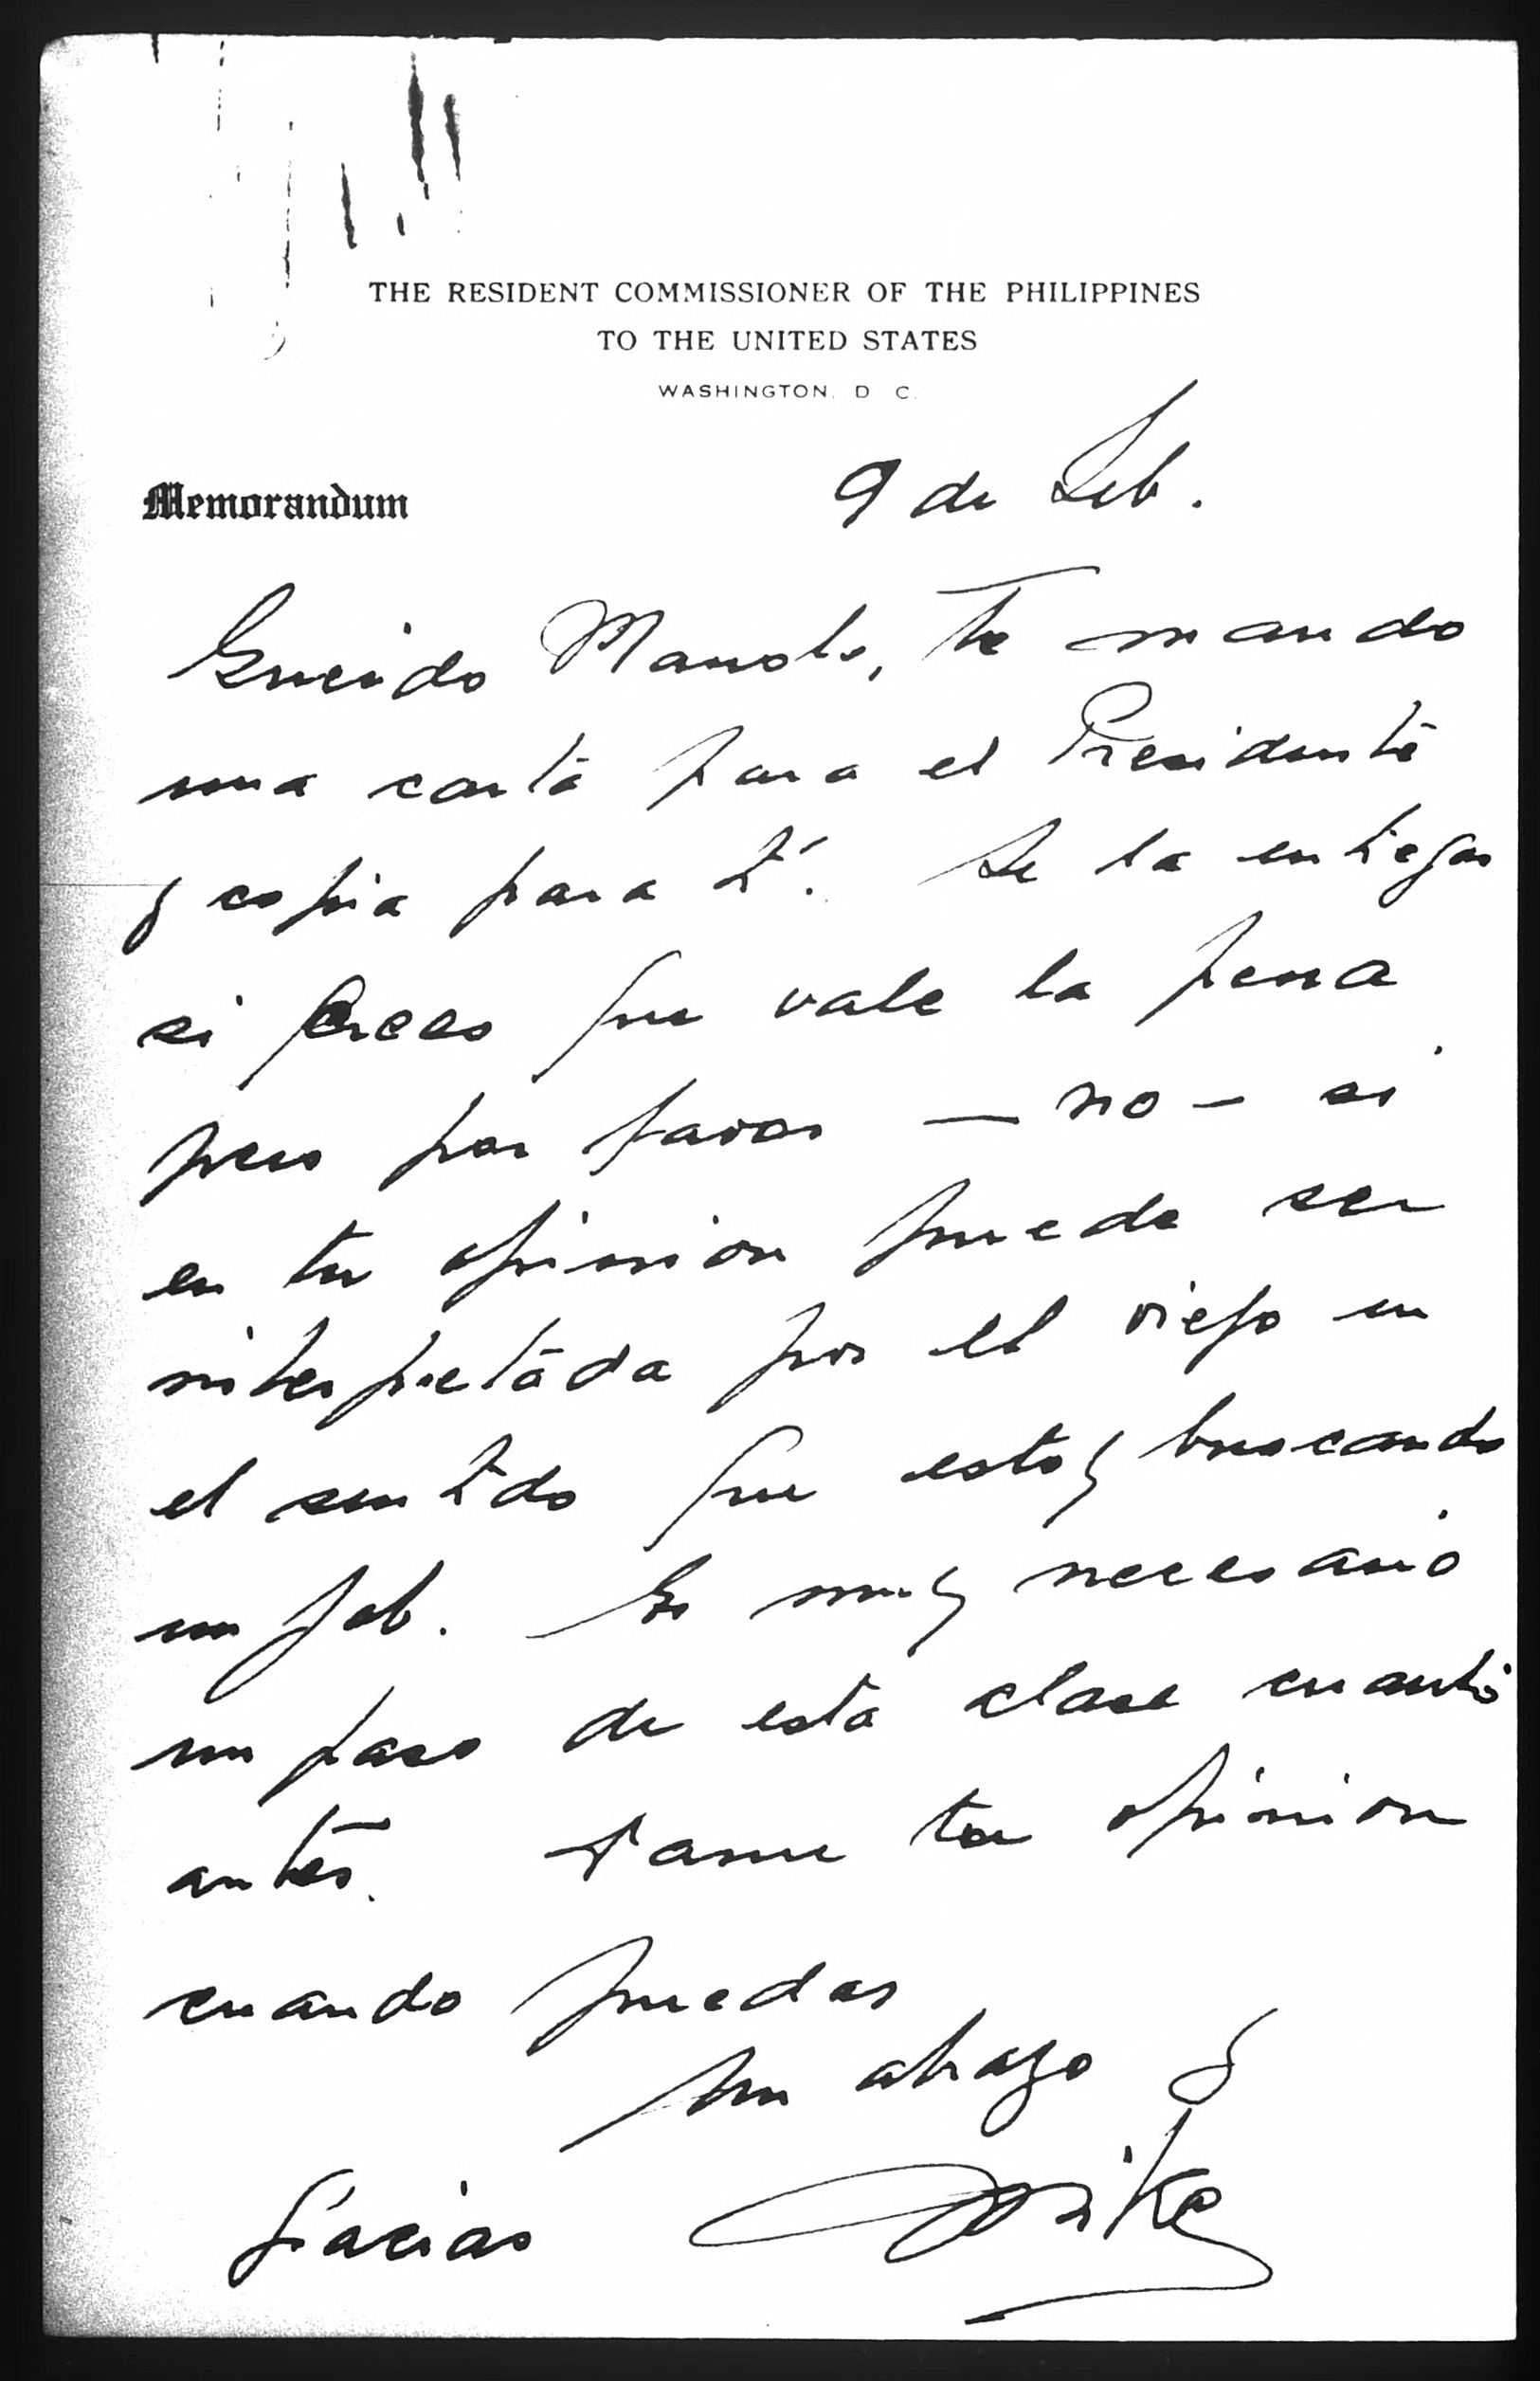 THE RESIDENT COMMISSIONER OF THE PHILIPPINES
TO THE UNITED STATES
WASHINGTON, D. C.
Memorandum
9 de Feb.
Querido Manolo, Te mando
una carta para el Presidente
y copia para tí. Se la entregas
si crees que vale la pena
pero por favor — no — si
en tu opinion puede ser
interpretada por el viejo en
el sentido que estoy buscando
un job. Es muy necesario
un paso de esta clase cuanto
antes. Dame tu opinion
cuando puedas
Un abrazo y
Gracias Mike